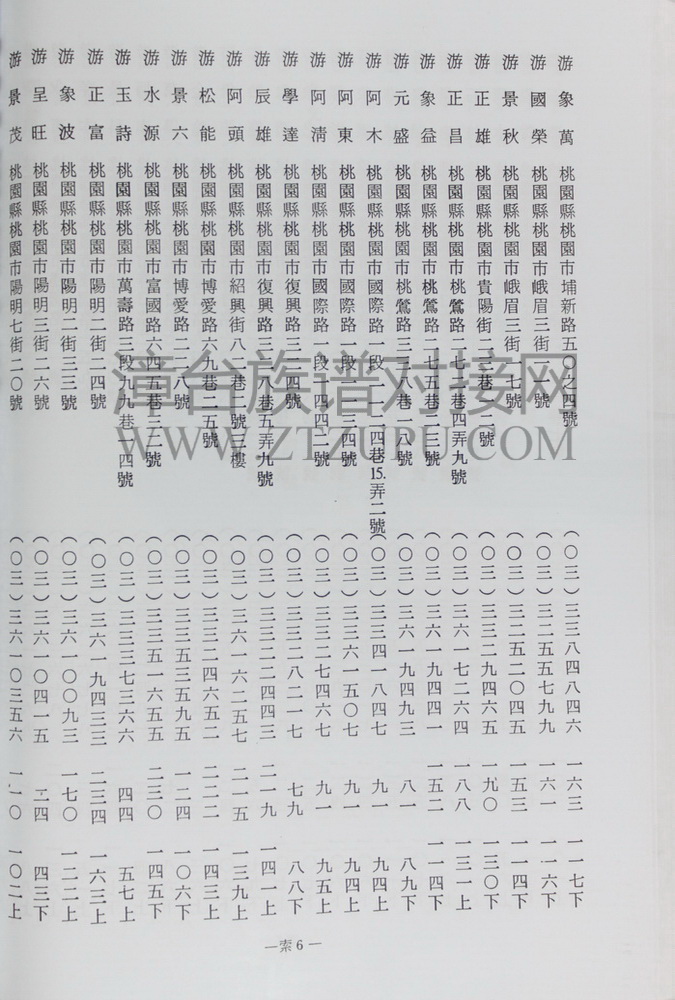 游象萬 桃園縣桃園市埔新路五〇之四號 (〇三)三三八四八四六 一六三 一一七下
游國榮 桃園縣桃園市峨眉三街一一號 (〇三)三二五五七九九 一六一 一一六下
游景秋 桃園縣桃園市峨眉三街一七號 (〇三)三二五二〇四五 一五三 一一四下
游正雄 桃園縣桃園市貴陽街二二巷 號 (〇三)三三二九四六五 一九〇 一三〇下
游正昌 桃園縣桃園市桃鶯路二七三巷四弄九號 (〇三)三六一七二六四 一八八 一三一上
游象益 桃園縣桃園市桃鶯路二七五巷二三號 (〇三)三六一九四四一 一五二 一一四下
游元盛 桃園縣桃園市桃鶯路三二八巷一八號 (〇三)三六一九四九三 八一 八九下
游阿木 桃園縣桃園市國際路一段 四巷15.弄二號 (〇三)三三四一八四七 九一 九四上
游阿東 桃園縣桃園市國際路一段 四號 (〇三)三三六一五〇七 九一 九四上
游阿清 桃園縣桃園市國際路一段一四四二號 (〇三)三三二七四六七 九一 九五上
游學達 桃園縣桃園市復興路三 四號 (〇三)三三二八二一七 七九 八八下
游辰雄 桃園縣桃園市復興路三一八巷五弄九號 (〇三)三三二二四四三 二一九 一四一上
游阿頭 桃園縣桃園市紹興街八二巷一號三樓 (〇三)三六一六二五七 二一五 一三九上
游松能 桃園縣桃園市博愛路六九巷二五號 (〇三)三三二四六五二 二二二 一四三上
游景六 桃園縣桃園市博愛路二一八號 (〇三)三三五三五九五 一二四 一〇六下
游水源 桃園縣桃園市富國路六四五巷三二號 (〇三)三三五一六五五 二三〇 一四五下
游玉詩 桃園縣桃園市萬壽路三段九九巷一四號 (〇三)三三三七三六六 四四 五七上
游正富 桃園縣桃園市陽明二街一四號 (〇三)三六一九四三三 二三四 一六三上
游象波 桃園縣桃園市陽明二街三三號 (〇三)三六一〇〇九三 一七〇 一二二上
游呈旺 桃園縣桃園市陽明三街二六號 (〇三)三六一〇四一五 二四 四三下
游景茂 桃園縣桃園市陽明七街二〇號 (〇三)三六一〇三五六 一一〇 一〇二上
—索6—
漳台族谱对接网
WWW.ZTZUPU.COM